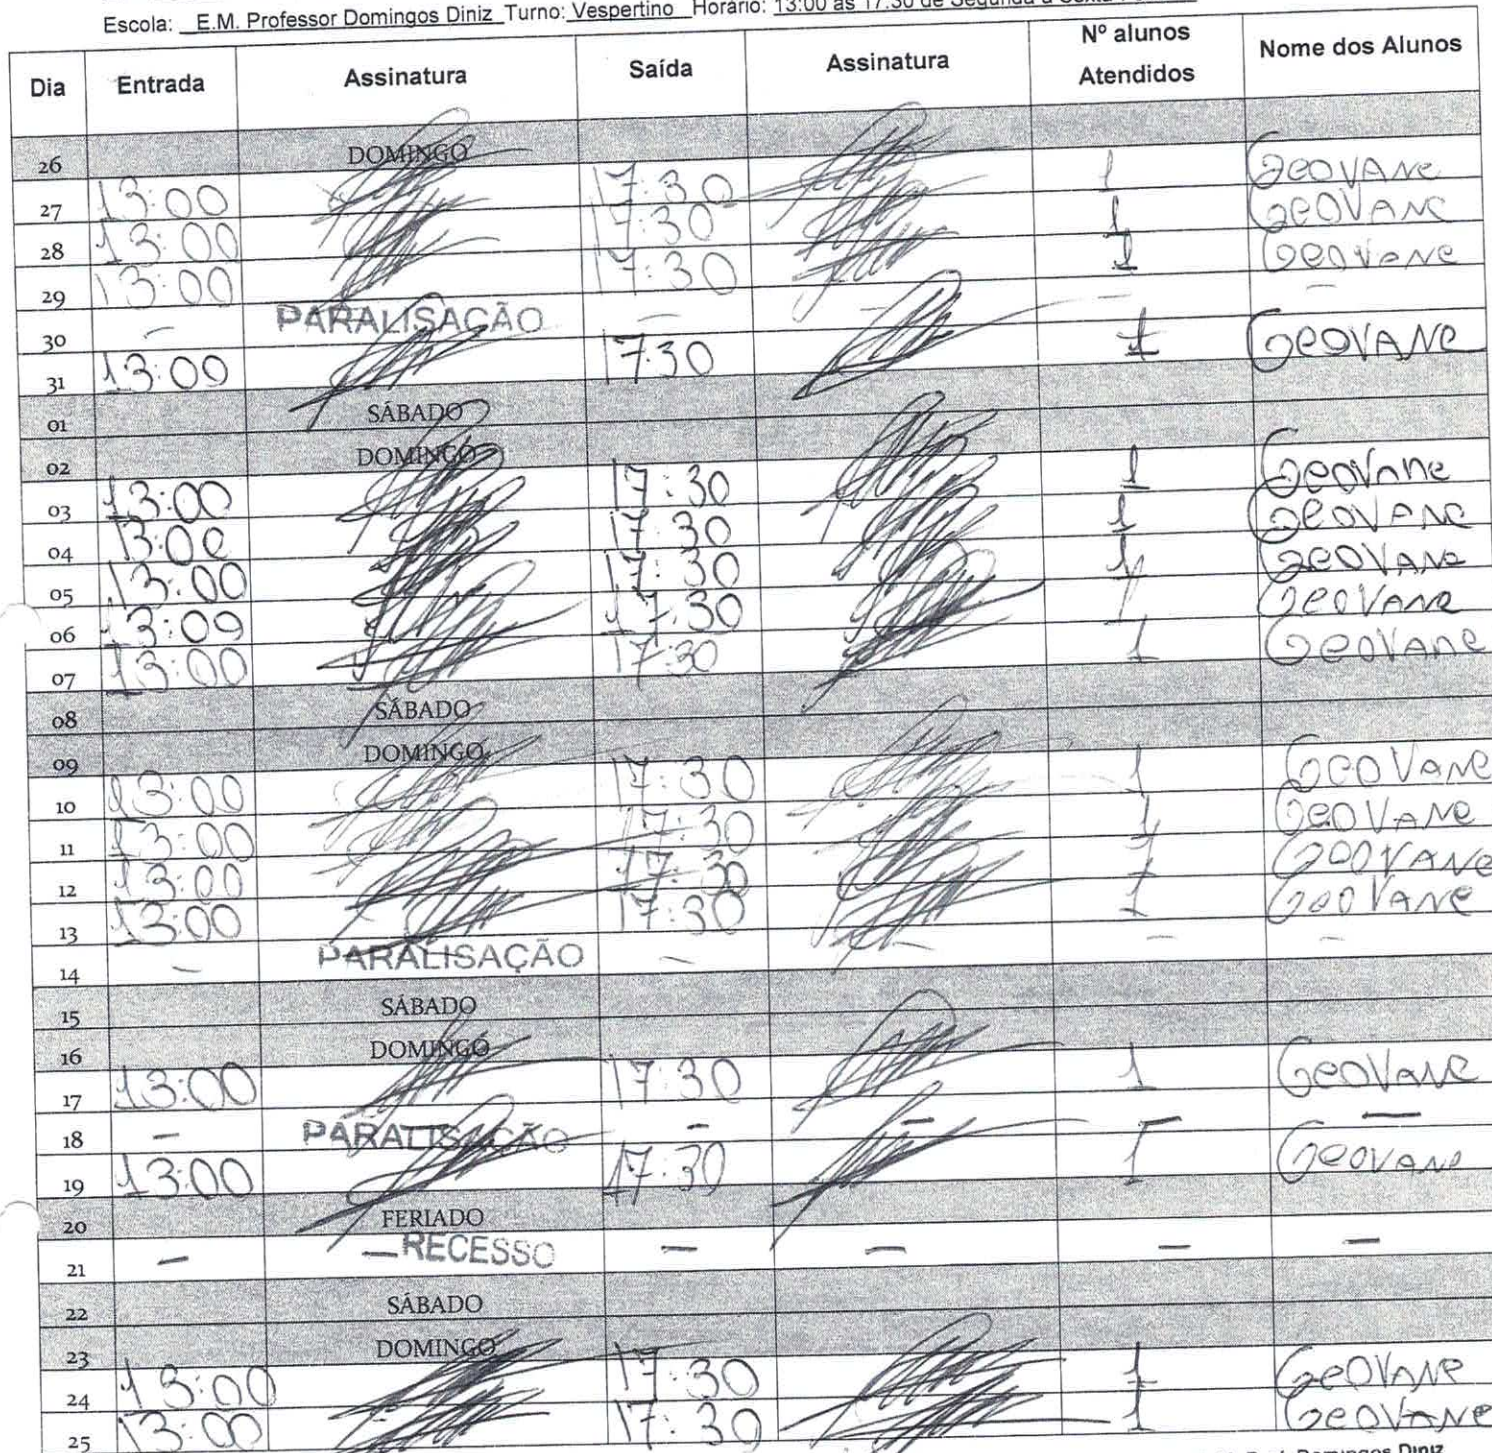 Escola: E.M. Professor Domingos Diniz Turno: Vespertino Horário: 13:00 às 17:30 de Segunda a Sexta
Dia Entrada Assinatura Saída Assinatura Nº alunos Atendidos Nome dos Alunos
26 DOMINGO
27 13:00 17:30 1 GEOVANE
28 13:00 17:30 1 GEOVANE
29 13:00 17:30 1 GEOVANE
30 – PARALISAÇÃO – – – –
31 13:00 17:30 1 GEOVANE
01 SÁBADO
02 DOMINGO
03 13:00 17:30 1 GEOVANE
04 13:00 17:30 1 GEOVANE
05 13:00 17:30 1 GEOVANE
06 13:00 17:30 1 GEOVANE
07 13:00 17:30 1 GEOVANE
08 SÁBADO
09 DOMINGO
10 13:00 17:30 1 GEOVANE
11 13:00 17:30 1 GEOVANE
12 13:00 17:30 1 GEOVANE
13 13:00 17:30 1 GEOVANE
14 – PARALISAÇÃO – – – –
15 SÁBADO
16 DOMINGO
17 13:00 17:30 1 GEOVANE
18 – PARALISAÇÃO – – – –
19 13:00 17:30 1 GEOVANE
20 FERIADO
21 – – RECESSO – – – –
22 SÁBADO
23 DOMINGO
24 13:00 17:30 1 GEOVANE
25 13:00 17:30 1 GEOVANE
Domingos Diniz